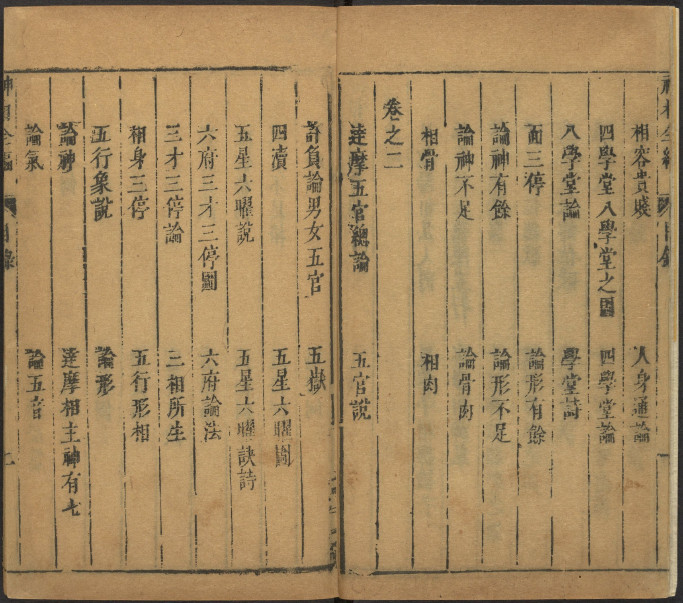 相容貴賤 人身通論
四學堂八學堂之圖 四學堂論
八學堂論 學堂詩
面三停 論形有餘
論神有餘 論形不足
論神不足 論骨肉
相骨 相肉
卷之二
達摩五官總論 五官說
許負論男女五官 五嶽
四瀆 五星六曜圖
五星六曜說 五星六曜訣詩
六府三才三停圖 六府論法
三才三停論 三相所生
相身三停 五行形相
五行象說 論形
論神 達摩相主神有七
論氣 論五音